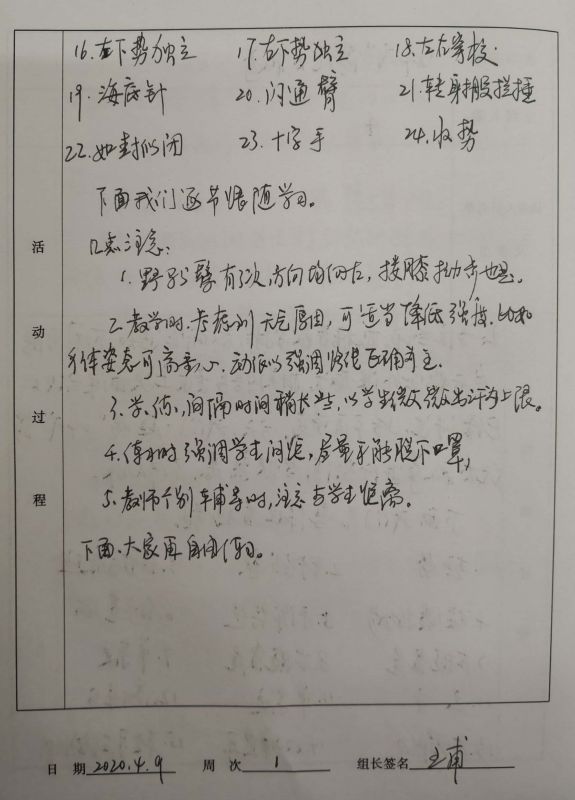 16.左下势独立 17.右下势独立 18.左右穿梭
19.海底针 20.闪通臂 21.转身搬拦捶
22.如封似闭 23.十字手 24.收势
下面我们逐节跟随学习。
几点注意:
1.野马分鬃有三次,方向均向左,搂膝拗步也是。
2.教学时,考虑到天气原因,可适当降低强度。比如
身体姿态可高一点、动作以强调路线正确为主.
3.学、练,间隔时间稍长些,以学生微微出汗为上限。
4.练习时强调学生间距,尽量不能脱下口罩,
5.教师个别辅导时,注意与学生距离。
下面、大家再自由练习。
活
动
过
程
日 期 2020.4.9 周 次 1 组长签名 王甫